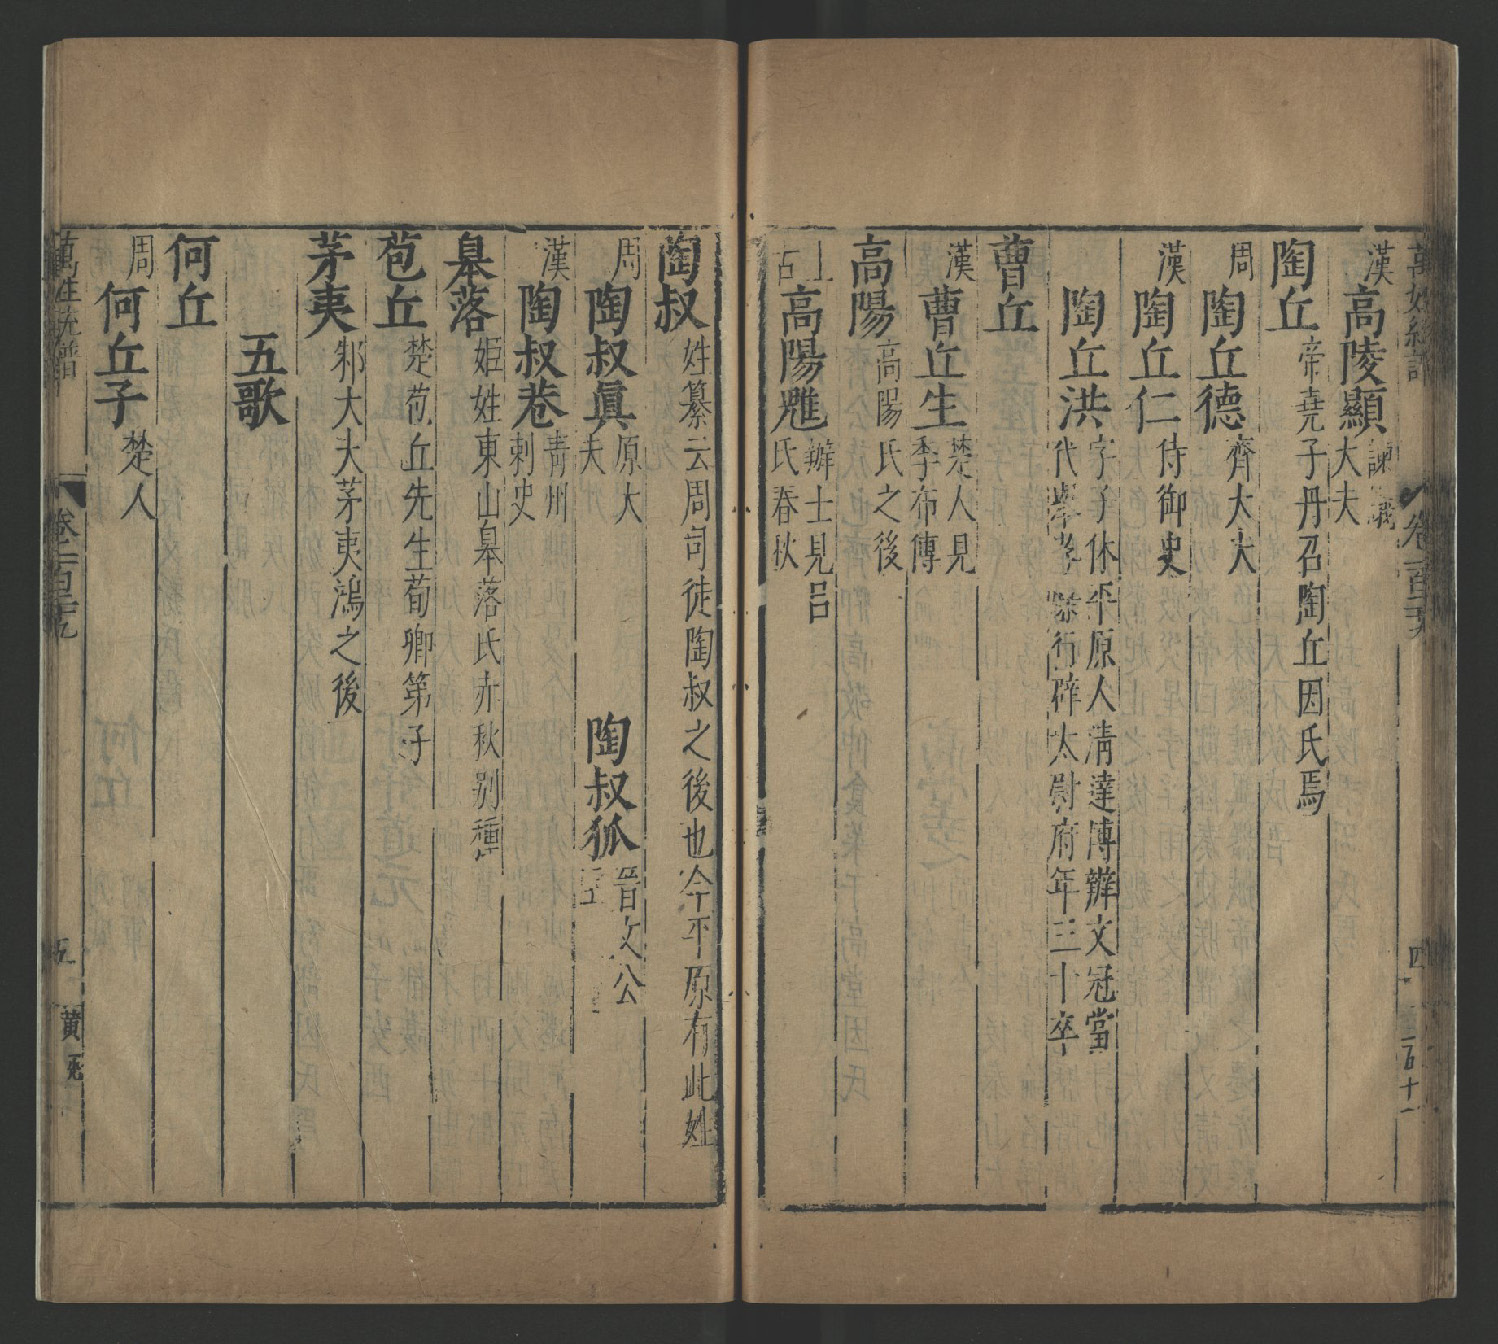 漢　高陵顯諫議大夫
陶丘帝堯子丹召陶丘因氏焉
周　陶丘德齊大夫
漢　陶丘仁侍御史
陶丘洪字子休平原人清達博辯文冠當代舉孝廉不行辟太尉府年三十卒
曹丘
漢　曹丘生楚人見季布傳
高陽高陽氏之後
高陽魋辯士見呂氏春秋
陶叔姓纂云周司徒陶叔之後也今平原有此姓
周　陶叔眞原大夫　陶叔狐晉文公
漢　陶叔巷青州刺史
皋落姬姓東山皋落氏赤狄别種
苞丘楚苞丘先生荀卿弟子
茅夷邾大夫茅夷鴻之後
五歌
何丘
周　何丘子楚人
萬姓統譜　卷一百二十九　五